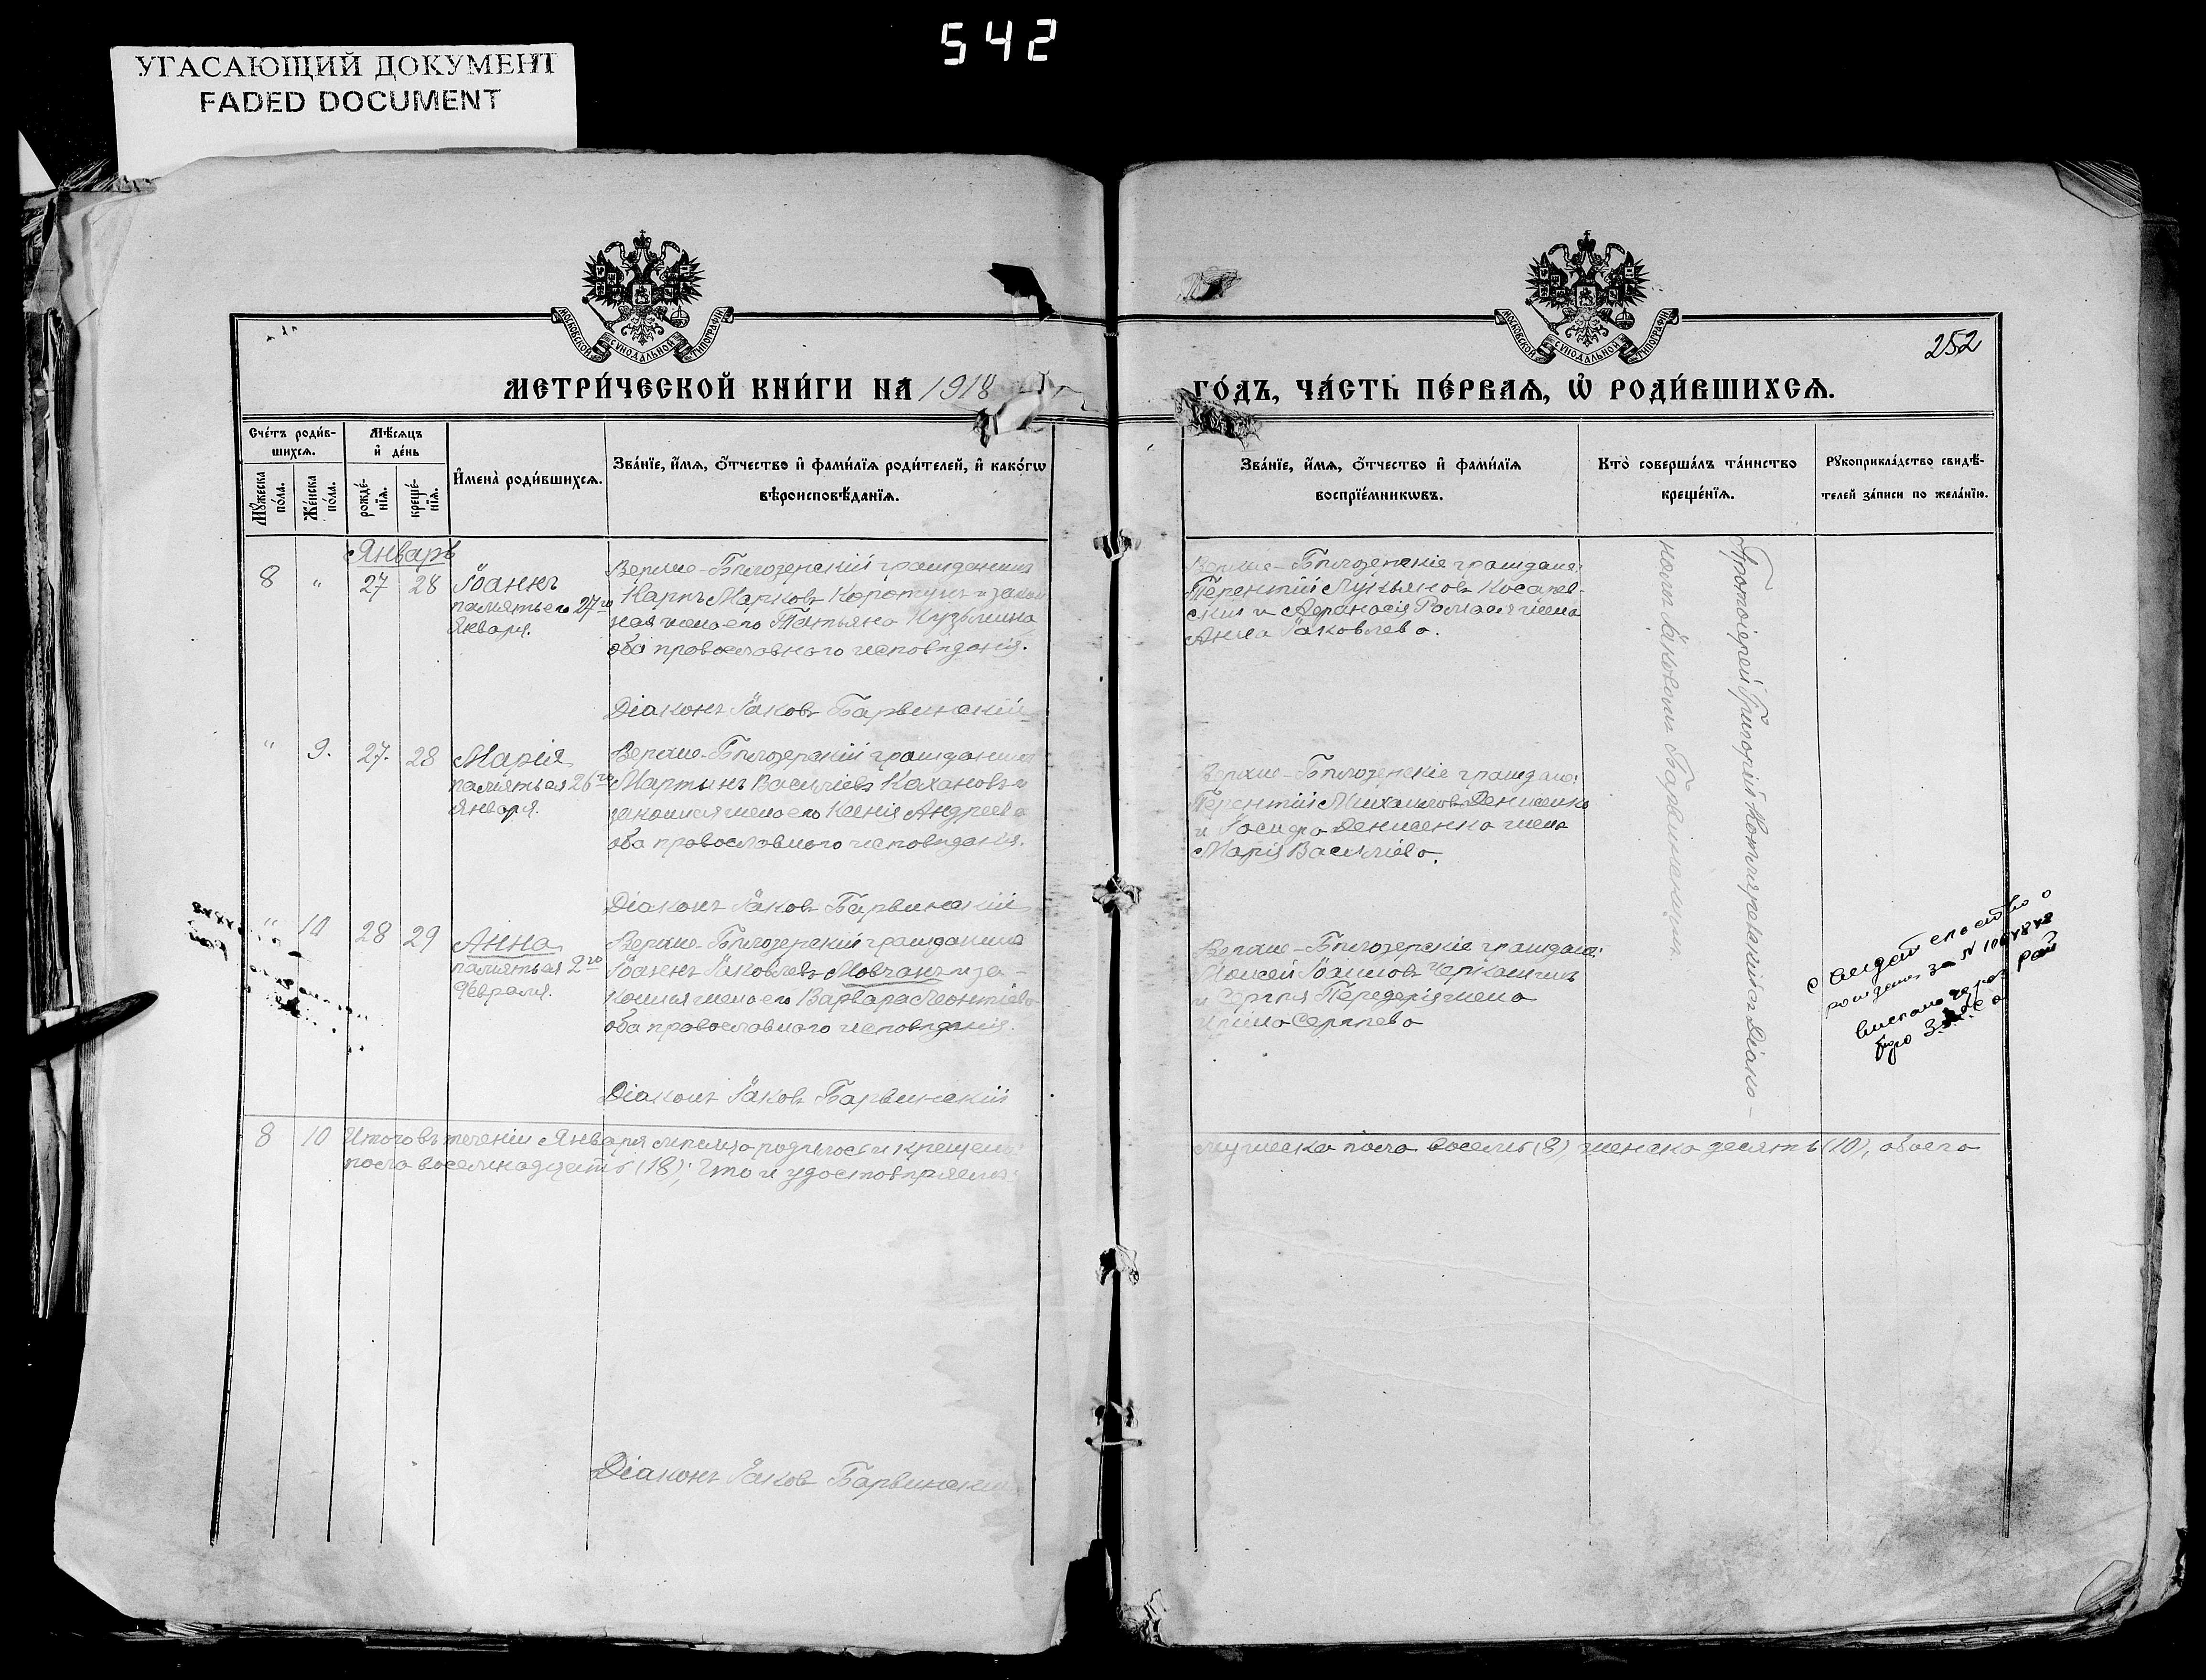 542
УГАСАЮЩИЙ ДОКУМЕНТ
FADED DOCUMENT
МОСКОВСКОЙ СѴНОДАЛЬНОЙ ТИПОГРАФІИ
МОСКОВСКОЙ СѴНОДАЛЬНОЙ ТИПОГРАФІИ
252
МЕТРИ́ЧЕСКОЙ КНИ́ГИ НА 1918
ГО́ДЪ, ЧА́СТЬ ПЕ́РВАѦ, Ѽ РОДИ́ВШИХСѦ.
Сче́тъ роди́в-
шихсѧ.
Мꙋжеска по́ла.
Же́нска по́ла.
Мѣ́сѧцъ
и҆ де́нь
рожде́-
нїѧ.
креще́-
нїѧ.
И҆мена̀ роди́вшихсѧ.
Зва́нїе, и҆́мѧ, ѻ҆́тчество и҆ фами́лїѧ роди́телей, и҆ како́гѡ
вѣроисповѣ́данїѧ.
Зва́нїе, и҆́мѧ, ѻ҆́тчество и҆ фами́лїѧ
воспрїе́мникѡвъ.
Кто̀ соверша́лъ та́инство
креще́нїѧ.
Рꙋкоприкла́дство свидѣ́-
телей за́писи по жела́нїю.
Январь
8 " 27 28 Іоаннъ
память его 27го
Января.
Верхне-Бѣлозерскій гражданинъ
Карпъ Марковъ Коротунъ и закон
ная жена его Татьяна Кузьмина
оба православного исповѣданія.
Діаконъ Іаковъ Барвинскій
Верхне-Бѣлозерскіе граждане:
Терентій Лукьяновъ Косарев-
скій и Афанасія жена
Анна Іаковлева.
Протоіерей Григорій съ Діако-
номъ Іаковомъ Барвинскимъ
" 9. 27. 28 Марія
память ея 26го
Января.
Верхне-Бѣлозерскій гражданинъ
Мартынъ Васильевъ Кохановъ и
законная жена его Ксенія Андреева
оба православного исповѣданія.
Діаконъ Іаковъ Барвинскій
Верхне-Бѣлозерскіе граждане:
Терентій Михайловъ Денисенко
и Іосифа Денисенко жена
Марія Васильева.
" 10 28 29 Анна
память ея 2го
Февраля.
Верхне-Бѣлозерскій гражданинъ
Іоаннъ Іаковлевъ Мовчанъ и за-
конная жена его Варвара Леонтіева
оба православного исповѣданія.
Діаконъ Іаковъ Барвинскій
Верхне-Бѣлозерскіе граждане:
Моисей Іоанновъ Черкашинъ
и Сергѣя Передерія жена
Ирина Сергѣева
за №
через Рай
бюро ЗАГСа
8 10 Итого въ теченіи Января мѣсяца родилось и крещено:
мужеска пола восемь (8), женска десять (10), обоего
пола восемнадцать (18); Что и удостовѣряемъ:
Діаконъ Іаковъ Барвинскій